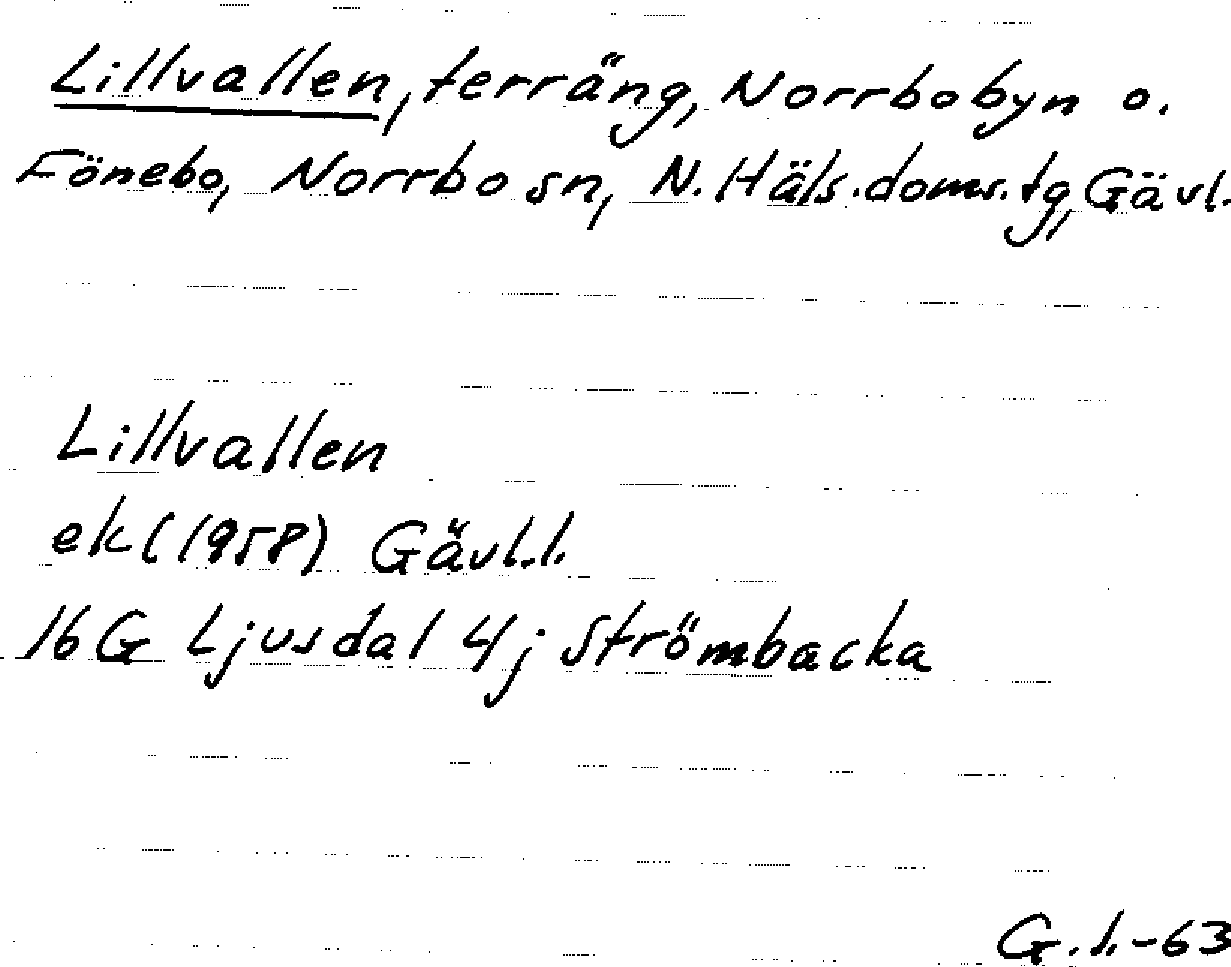 Lillvallen, terräng, Norrbobyn o.
Fönebo, Norrbo sn, N. Häls. doms. tg, Gävl.
Lillvallen
ek (1958) Gävl.l.
16G Ljusdal 4j Strömbacka
G.l.-63